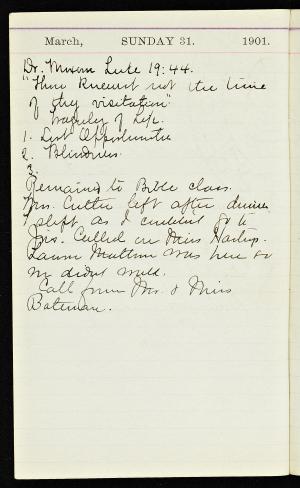 March, SUNDAY 31. 1901.
Dr. Luke 19:44.
"Thou knewest not the time
of thy visitation"
Tragedy of Life.
1. Lost Opportunities
2. Blindness.
3.
Remained to Bible class.
Mrs. Cutter left after dinner
I slept as I couldn't go to
Called on Miss
Laura was here so
we didn't
Call from Mr. & Miss
Bateman.